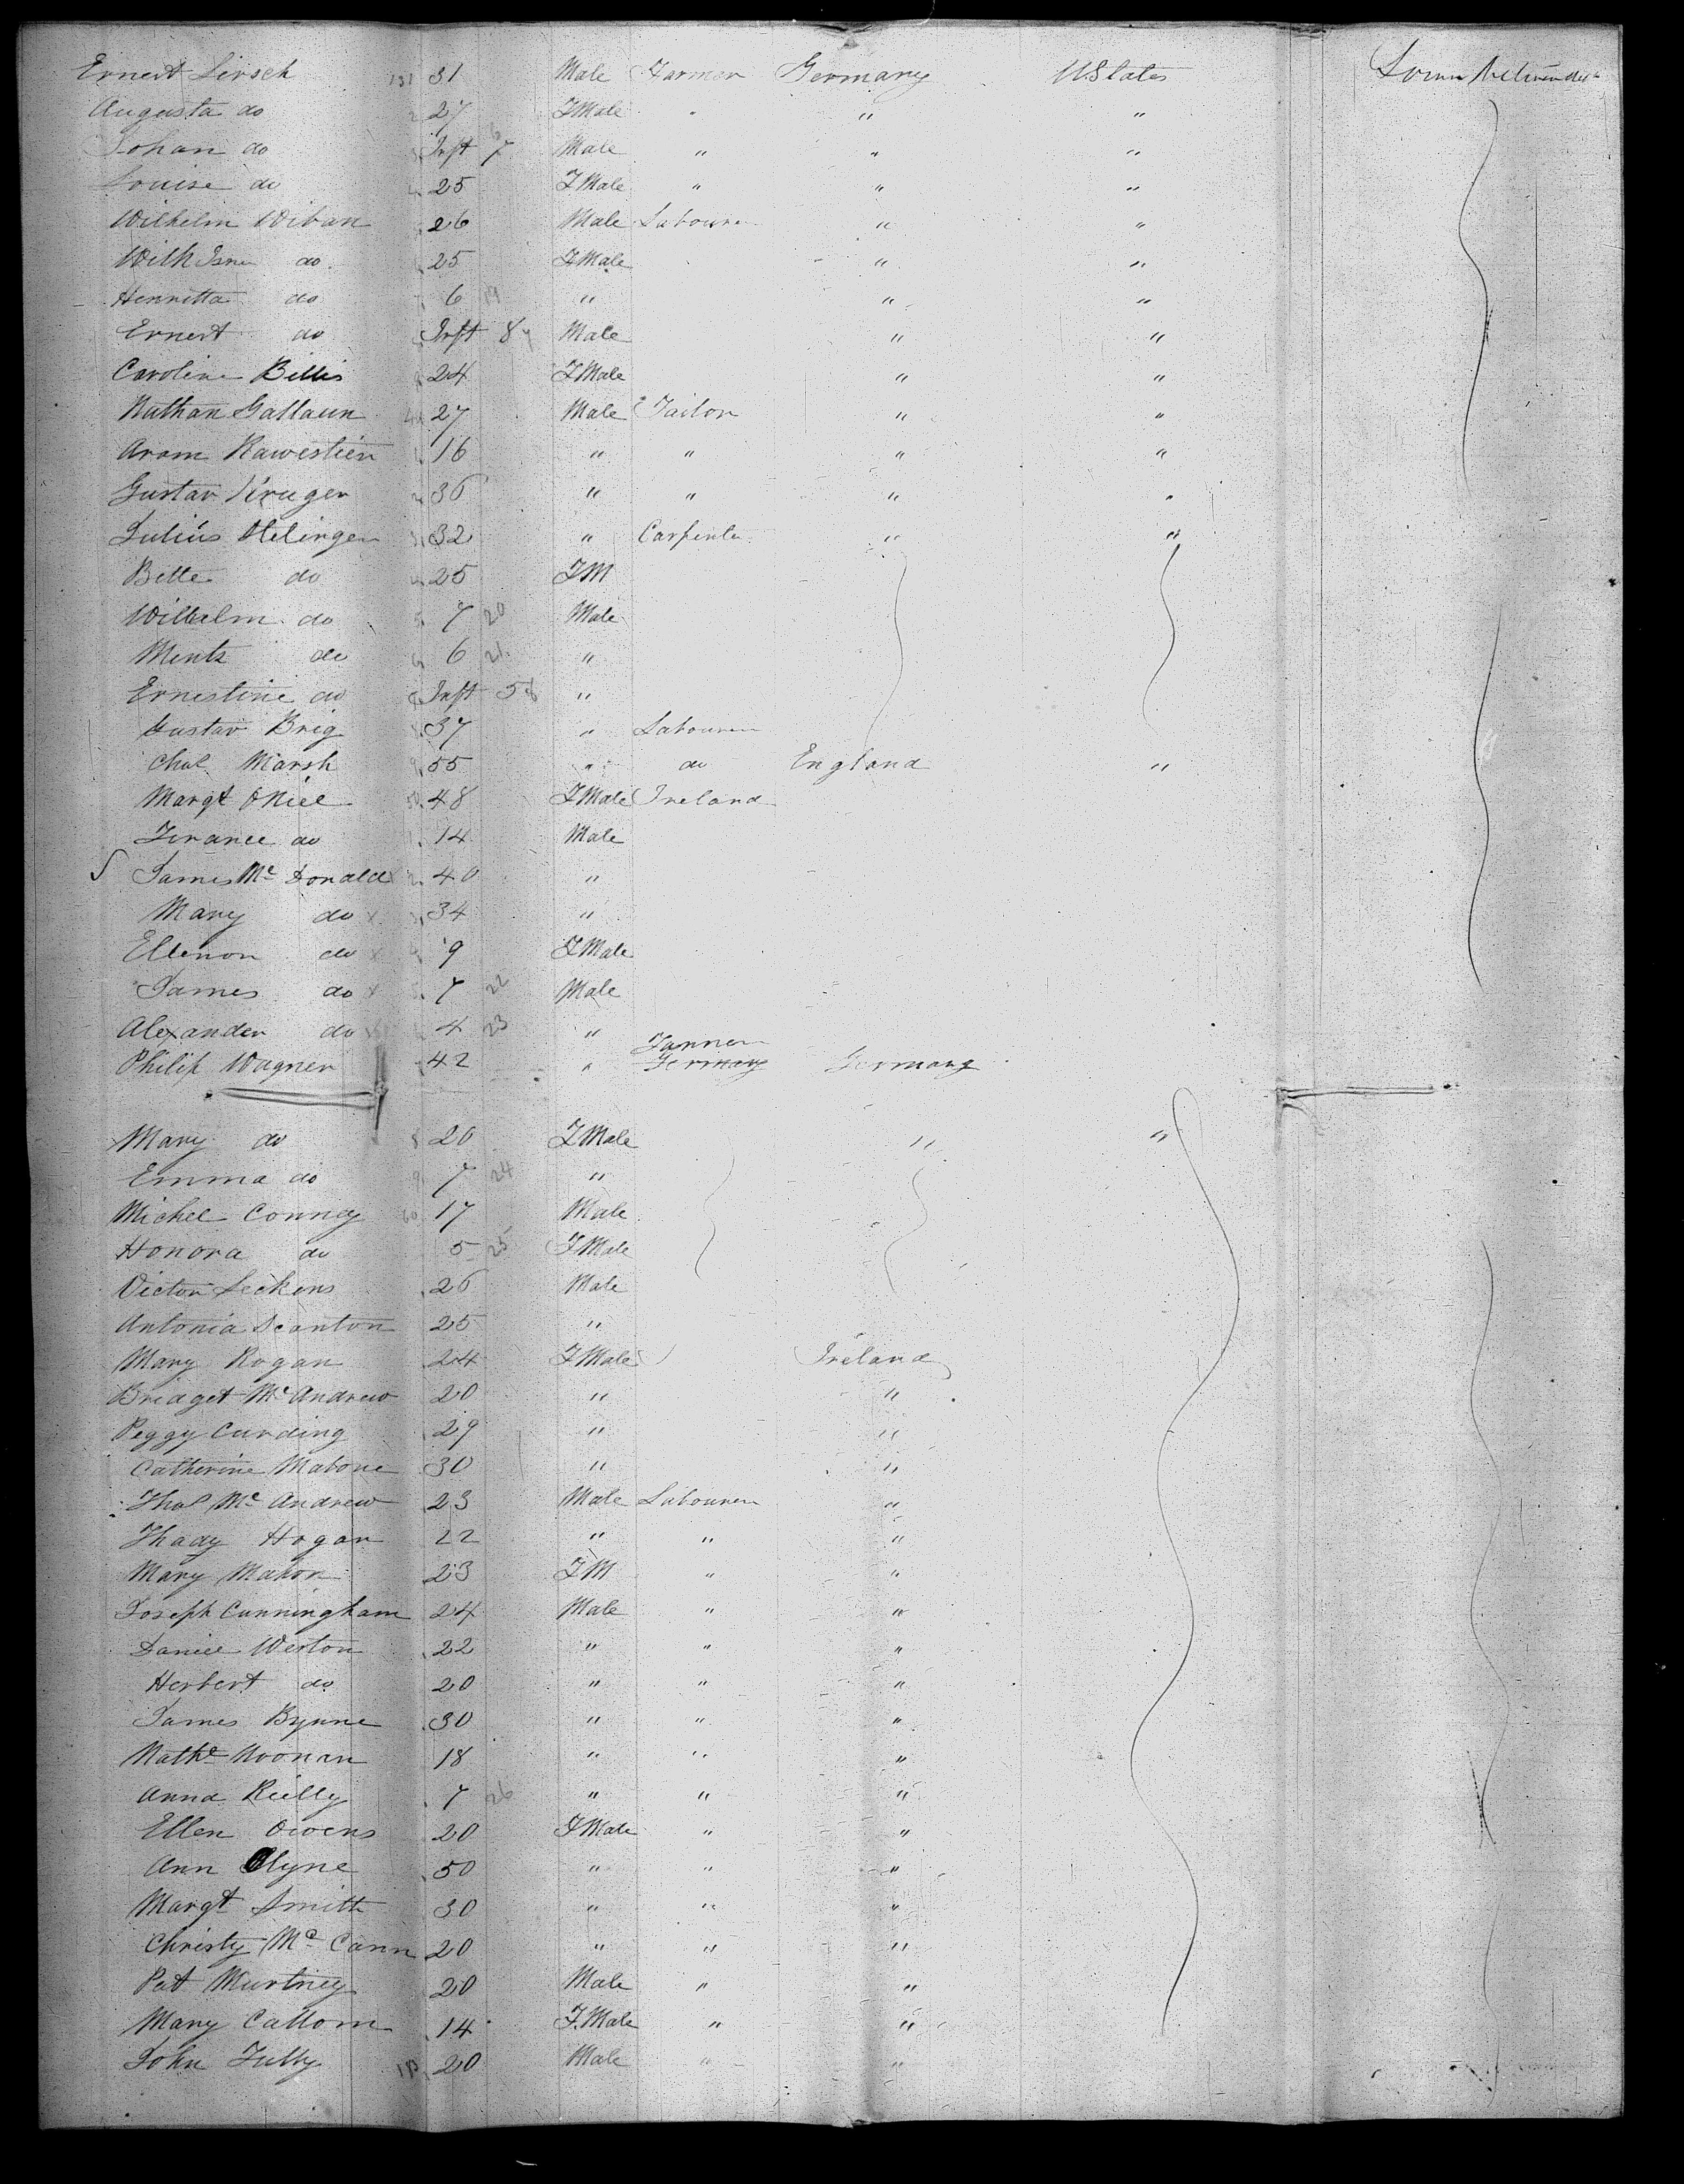 Ernest Lirsch 131 31 Male Farmer Germany UStates Lower
Augusta do 27 FMale " " "
Johan do Inft Male " " "
Louise do 25 FMale " " "
Wilhelm Wiban 26 Male Labourer " "
do 25 FMale " "
Henritta do 6 19 " " "
Ernest do Inft 8 Male " "
Caroline Billis 24 FMale " "
Nathan Gallaun 27 Male Tailor " "
Aram Rawestien 16 " " " "
Gustav Kruger 36 " " " "
Julius Helinger 32 " Carpenter " "
Bette do 25 FM
Wilhelm do 7 20 Male
Mentz do 6 21 "
Ernestine do Inft 5 "
Gustav Brig 37 " Labourer
Chas Marsh 55 " do England "
Margt ONiel 48 FMale Ireland
Terance do 14 Male
James Mc Donald 2 40 "
Mary do x 34 "
Ellenor do x 9 FMale
James do x 7 22 Male
Alexander do 4 23 "
Philip Wagner 42 " Tanner Germany Germany
Mary do 8 20 FMale " "
Emma do 9 7 24 "
Michel Conney 60 17 Male
Honora do 5 25 FMale
Victor Leckens 26 Male
Antonia Scanton 25 "
Mary Rogan 24 FMale Ireland
Bridget Mc Andrew 20 " "
Peggy Curding 29 " "
Catherine Mabone 30 " "
Thos Mc Andrew 23 Male Labourer "
Thady Hogan 22 " " "
Mary Mahon 23 FM " "
Joseph Cunningham 24 Male " "
Daniel Weston 22 " " "
Herbert do 20 " " "
James Bynne 30 " " "
Noonan 18 " " "
Anna Rielly 7 26 " " "
Ellen Owens 20 FMale " "
Ann Clyne 50 " " "
Margt Smith 30 " " "
Christy Mc Cann 20 " " "
Pat Murtney 20 Male " "
Mary Callom 14 F.Male " "
John Tully 20 Male " "